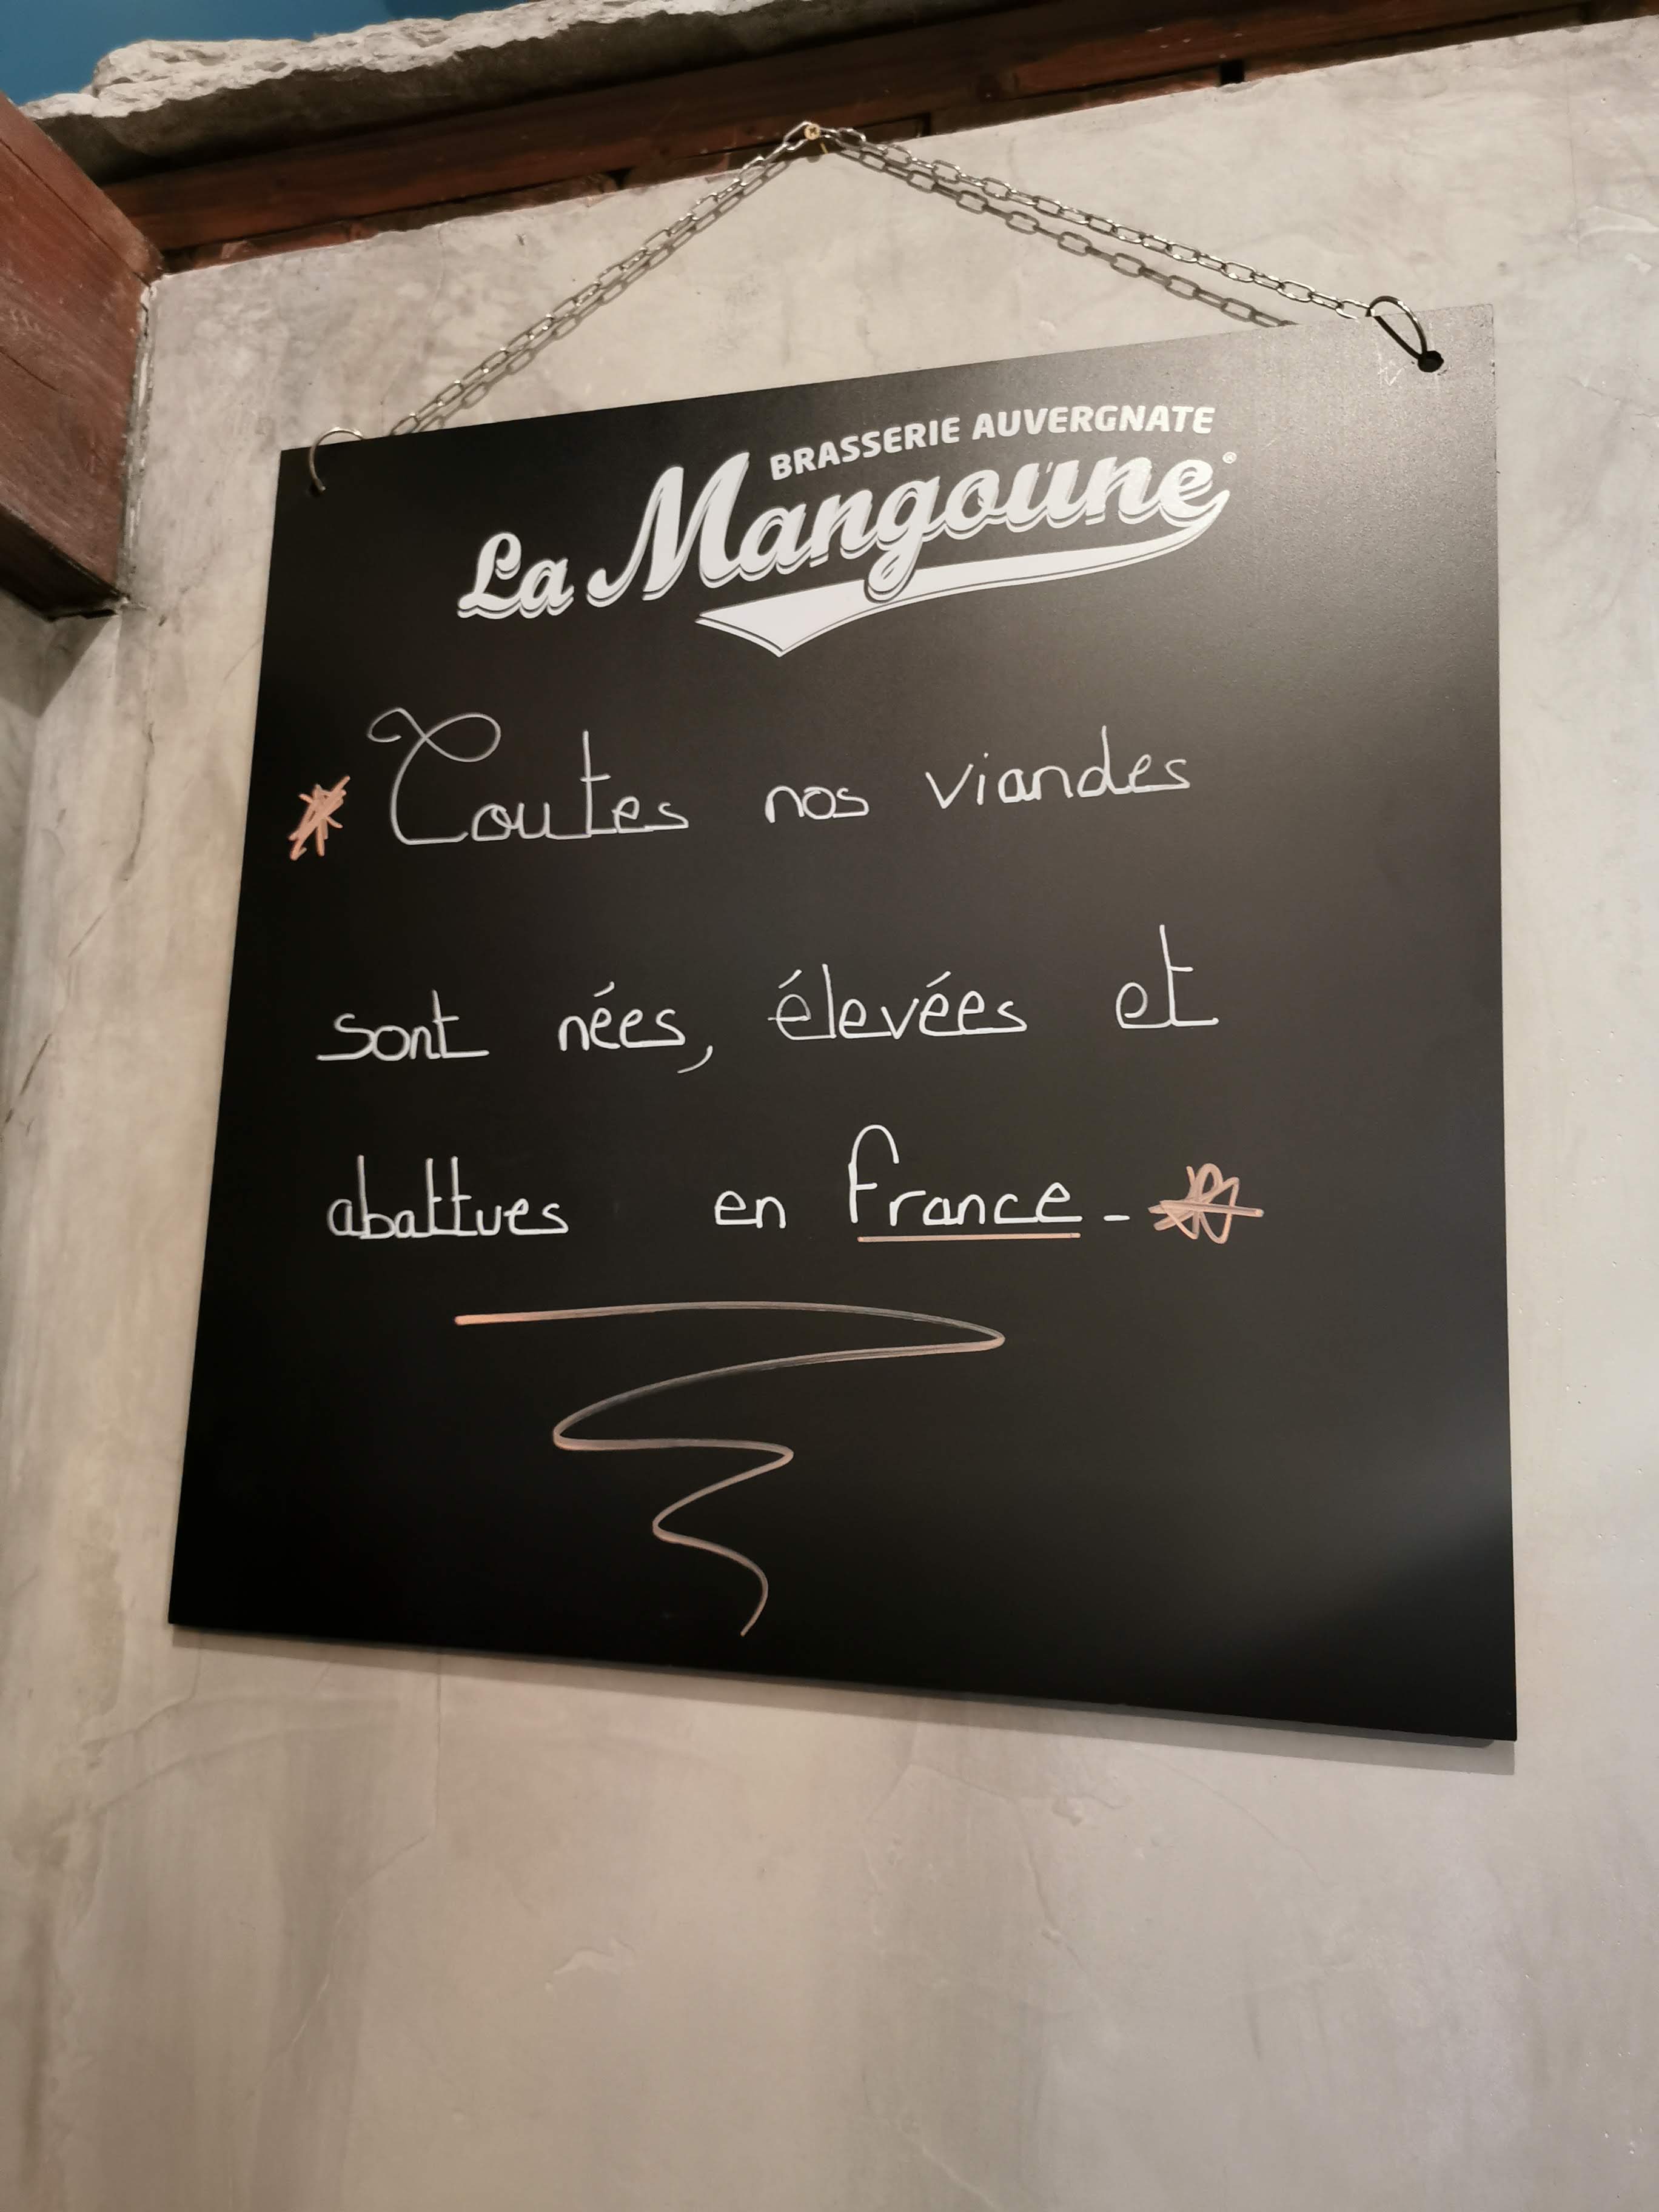 BRASSERIE AUVERGNATE
La Mangoune®
* Toutes nos viandes
sont nées, élevées et
abattues en France - *